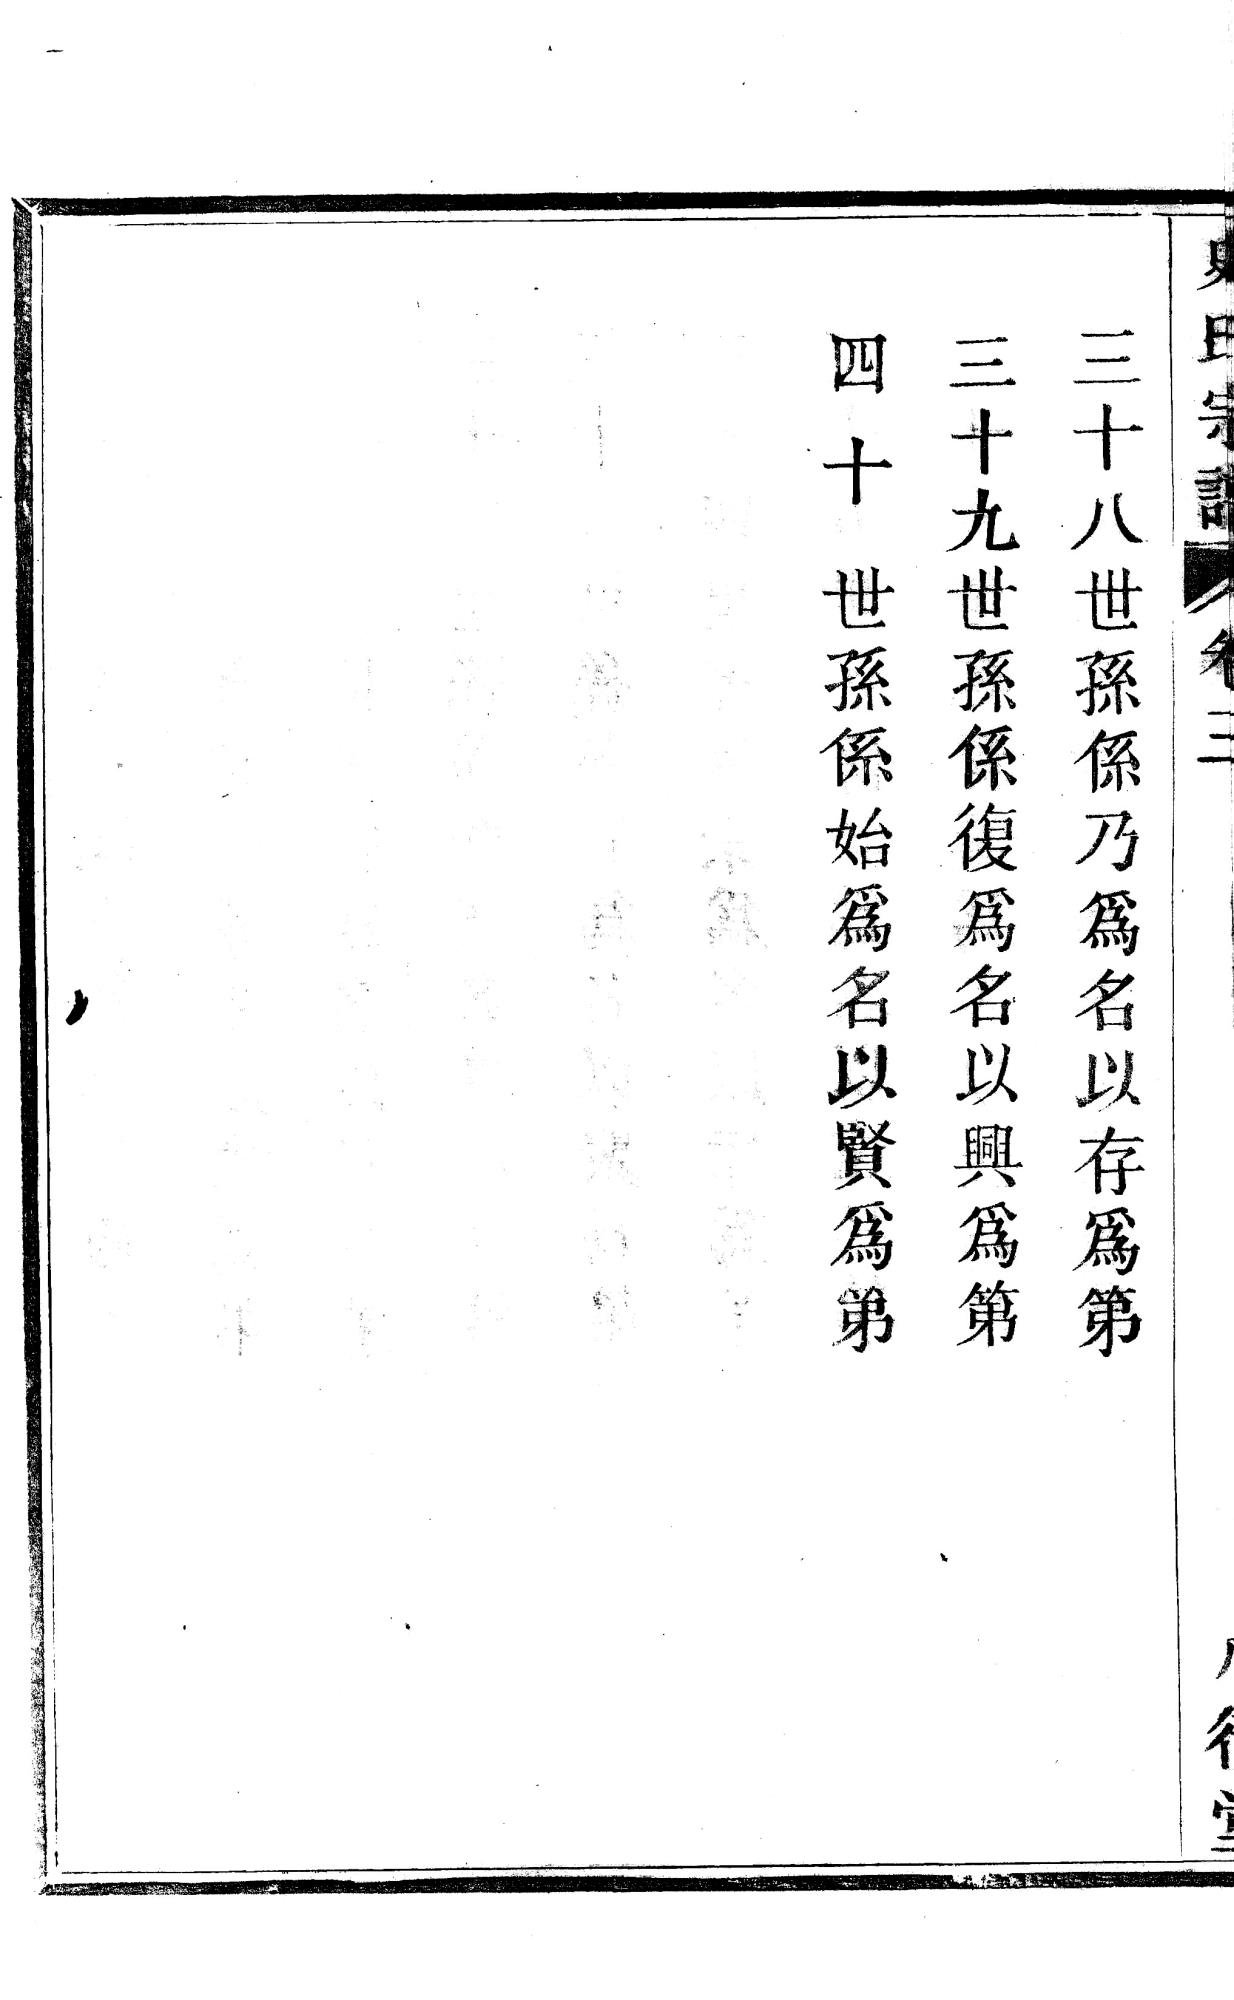 史氏宗譜 卷三 八行堂
三十八世孫係乃爲名以存爲第
三十九世孫係復爲名以興爲第
四十世孫係始爲名以賢爲弟